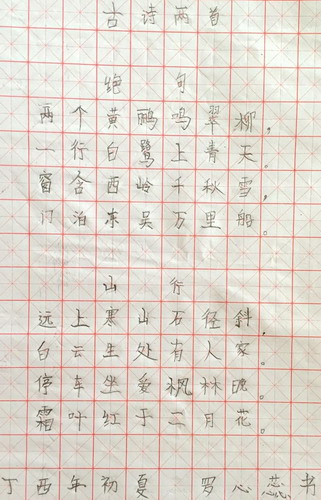 古诗两首
绝句
两个黄鹂鸣翠柳,
一行白鹭上青天。
窗含西岭千秋雪,
门泊东吴万里船。
山行
远上寒山石径斜,
白云生处有人家。
停车坐爱枫林晚。
霜叶红于二月花。
丁酉年初夏 罗心蕊书